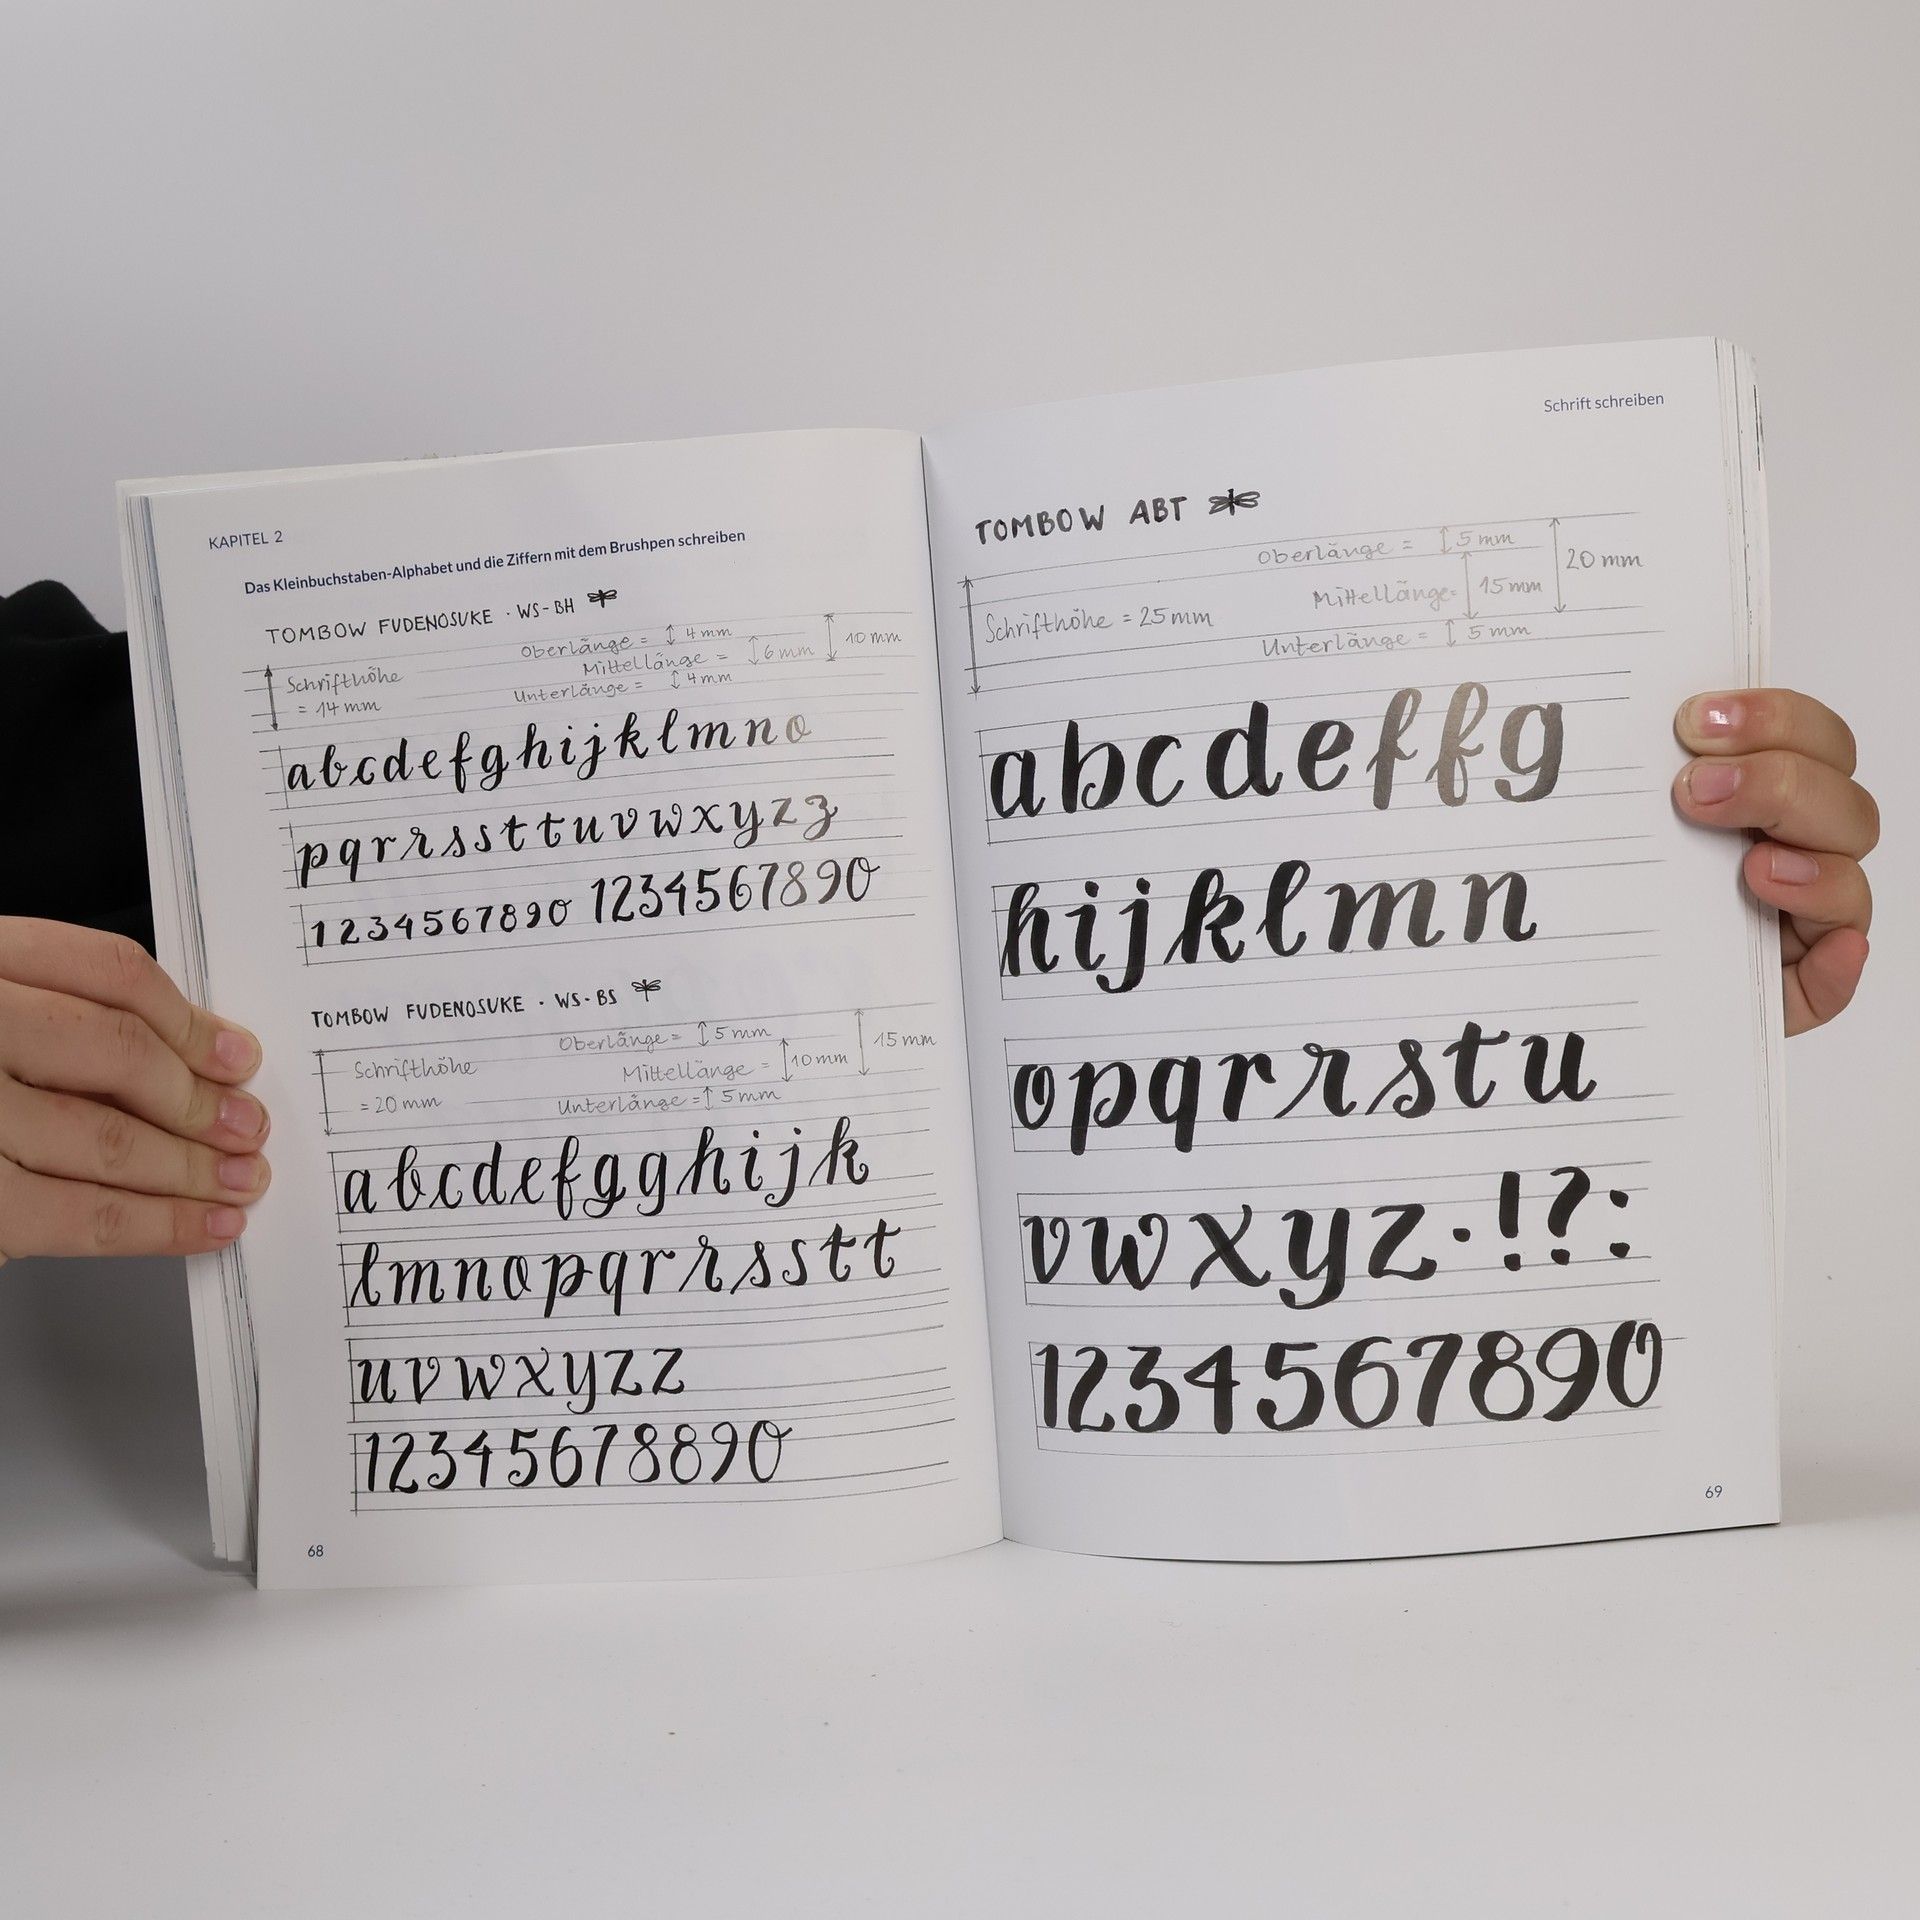 KAPITEL 2
Das Kleinbuchstaben-Alphabet und die Ziffern mit dem Brushpen schreiben
TOMBOW FUDENOSUKE · WS-BH
Oberlänge = 4 mm
Schrifthöhe
= 14 mm
Mittellänge = 6 mm
10 mm
Unterlänge = 4 mm
abcdefghijklmno
pqrrssttuvwxyzz
1234567890 1234567890
TOMBOW FUDENOSUKE · WS-BS
Oberlänge = 5 mm
Schrifthöhe
= 20 mm
Mittellänge = 10 mm
15 mm
Unterlänge = 5 mm
abcdefgghijk
lmnopqrrsstt
uvwxyzz
12345678890
68
Schrift schreiben
TOMBOW ABT
Oberlänge = 5 mm
20 mm
Schrifthöhe = 25 mm
Mittellänge = 15 mm
Unterlänge = 5 mm
abcdeffg
hijklmn
opqrrstu
vwxyz·!?:
1234567890
69